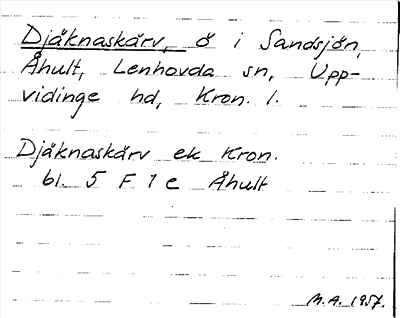 Djäknaskärv, ö i Sandsjön,
Åhult, Lenhovda sn, Upp-
vidinge hd, Kron. l.
Djäknaskärv ek Kron.
bl. 5 F 1 e Åhult
M.A. 1957.